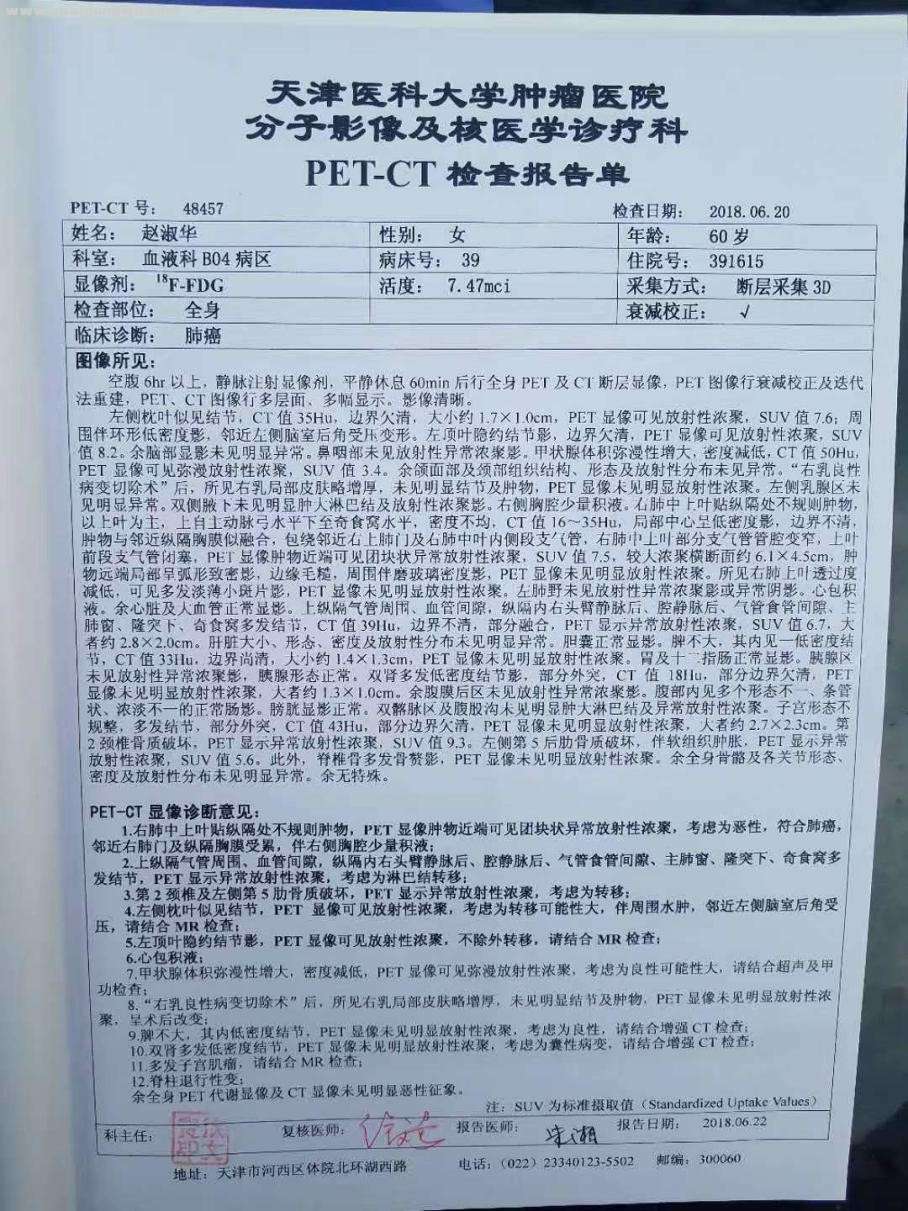 天津医科大学肿瘤医院
分子影像及核医学诊疗科
PET-CT 检查报告单
PET-CT 号： 48457 检查日期： 2018.06.20
姓名： 赵淑华 性别： 女 年龄： 60 岁
科室： 血液科 B04 病区 病床号： 39 住院号： 391615
显像剂： 18F-FDG 活度： 7.47mci 采集方式： 断层采集 3D
检查部位： 全身 衰减校正： √
临床诊断： 肺癌
图像所见：
空腹 6hr 以上，静脉注射显像剂，平静休息 60min 后行全身 PET 及 CT 断层显像，PET 图像行衰减校正及迭代
法重建，PET、CT 图像行多层面、多幅显示。影像清晰。
左侧枕叶似见结节，CT 值 35Hu，边界欠清，大小约 1.7×1.0cm，PET 显像可见放射性浓聚，SUV 值 7.6；周
围伴环形低密度影，邻近左侧脑室后角受压变形。左顶叶隐约结节影，边界欠清，PET 显像可见放射性浓聚，SUV
值 8.2。余脑部显影未见明显异常。鼻咽部未见放射性异常浓聚影。甲状腺体积弥漫性增大，密度减低，CT 值 50Hu，
PET 显像可见弥漫放射性浓聚，SUV 值 3.4。余颌面部及颈部组织结构、形态及放射性分布未见异常。“右乳良性
病变切除术”后，所见右乳局部皮肤略增厚，未见明显结节及肿物，PET 显像未见明显放射性浓聚。左侧乳腺区未
见明显异常。双侧腋下未见明显肿大淋巴结及放射性浓聚影。右侧胸腔少量积液。右肺中上叶贴纵隔处不规则肿物，
以上叶为主，上自主动脉弓水平下至奇食窝水平，密度不均，CT 值 16～35Hu，局部中心呈低密度影，边界不清，
肿物与邻近纵隔胸膜似融合，包绕邻近右上肺门及右肺中叶内侧段支气管，右肺中上叶部分支气管管腔变窄，上叶
前段支气管闭塞，PET 显像肿物近端可见团块状异常放射性浓聚，SUV 值 7.5，较大浓聚横断面约 6.1×4.5cm，肿
物远端局部呈弧形致密影，边缘毛糙，周围伴磨玻璃密度影，PET 显像未见明显放射性浓聚。所见右肺上叶透过度
减低，可见多发淡薄小斑片影，PET 显像未见明显放射性浓聚。左肺野未见放射性异常浓聚影或异常阴影。心包积
液。余心脏及大血管正常显影。上纵隔气管周围、血管间隙，纵隔内右头臂静脉后、腔静脉后、气管食管间隙、主
肺窗、隆突下、奇食窝多发结节，CT 值 39Hu，边界不清，部分融合，PET 显示异常放射性浓聚，SUV 值 6.7，大
者约 2.8×2.0cm。肝脏大小、形态、密度及放射性分布未见明显异常。胆囊正常显影。脾不大，其内见一低密度结
节，CT 值 33Hu，边界尚清，大小约 1.4×1.3cm，PET 显像未见明显放射性浓聚。胃及十二指肠正常显影。胰腺区
未见放射性异常浓聚影，胰腺形态正常。双肾多发低密度结节影，部分外突，CT 值 18Hu，部分边界欠清，PET
显像未见明显放射性浓聚，大者约 1.3×1.0cm。余腹膜后区未见放射性异常浓聚影。腹部内见多个形态不一、条管
状、浓淡不一的正常肠影。膀胱显影正常。双髂脉区及腹股沟未见明显肿大淋巴结及异常放射性浓聚。子宫形态不
规整，多发结节，部分外突，CT 值 43Hu，部分边界欠清，PET 显像未见明显放射性浓聚，大者约 2.7×2.3cm。第
2 颈椎骨质破坏，PET 显示异常放射性浓聚，SUV 值 9.3。左侧第 5 后肋骨质破坏，伴软组织肿胀，PET 显示异常
放射性浓聚，SUV 值 5.6。此外，脊椎骨多发骨赘影，PET 显像未见明显放射性浓聚。余全身骨骼及各关节形态、
密度及放射性分布未见明显异常。余无特殊。
PET-CT 显像诊断意见：
1.右肺中上叶贴纵隔处不规则肿物，PET 显像肿物近端可见团块状异常放射性浓聚，考虑为恶性，符合肺癌，
邻近右肺门及纵隔胸膜受累，伴右侧胸腔少量积液；
2.上纵隔气管周围、血管间隙，纵隔内右头臂静脉后、腔静脉后、气管食管间隙、主肺窗、隆突下、奇食窝多
发结节，PET 显示异常放射性浓聚，考虑为淋巴结转移；
3.第 2 颈椎及左侧第 5 肋骨质破坏，PET 显示异常放射性浓聚，考虑为转移；
4.左侧枕叶似见结节，PET 显像可见放射性浓聚，考虑为转移可能性大，伴周围水肿，邻近左侧脑室后角受
压，请结合 MR 检查；
5.左顶叶隐约结节影，PET 显像可见放射性浓聚，不除外转移，请结合 MR 检查；
6.心包积液；
7.甲状腺体积弥漫性增大，密度减低，PET 显像可见弥漫放射性浓聚，考虑为良性可能性大，请结合超声及甲
功检查；
8.“右乳良性病变切除术”后，所见右乳局部皮肤略增厚，未见明显结节及肿物，PET 显像未见明显放射性浓
聚，呈术后改变；
9.脾不大，其内低密度结节，PET 显像未见明显放射性浓聚，考虑为良性，请结合增强 CT 检查；
10.双肾多发低密度结节，PET 显像未见明显放射性浓聚，考虑为囊性病变，请结合增强 CT 检查；
11.多发子宫肌瘤，请结合 MR 检查；
12.脊柱退行性变；
余全身 PET 代谢显像及 CT 显像未见明显恶性征象。
注：SUV 为标准摄取值（Standardized Uptake Values）
科主任： 复核医师： 报告医师： 报告日期： 2018.06.22
地址：天津市河西区体院北环湖西路 电话：（022）23340123-5502 邮编：300060